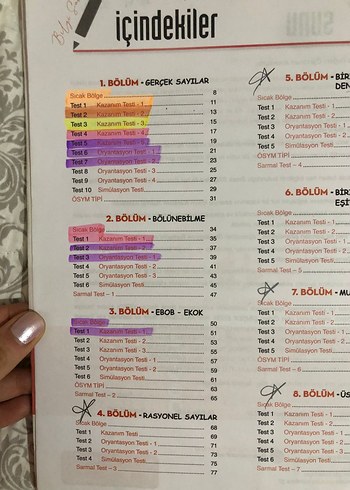 içindekiler
1. BÖLÜM - GERÇEK SAYILAR
Sıcak Bölge 8
Test 1 Kazanım Testi - 1 11
Test 2 Kazanım Testi - 2 13
Test 3 Kazanım Testi - 3 15
Test 4 Kazanım Testi - 4 17
Test 5 Kazanım Testi - 5 19
Test 6 Oryantasyon Testi - 1 21
Test 7 Oryantasyon Testi - 2 23
Test 8 Oryantasyon Testi - 3 25
Test 9 Oryantasyon Testi - 4 27
Test 10 Simülasyon Testi 29
ÖSYM TİPİ 31
2. BÖLÜM - BÖLÜNEBİLME
Sıcak Bölge 34
Test 1 Kazanım Testi - 1 35
Test 2 Kazanım Testi - 2 37
Test 3 Oryantasyon Testi - 1 39
Test 4 Oryantasyon Testi - 2 41
Test 5 Oryantasyon Testi - 3 43
Test 6 Simülasyon Testi 45
Sarmal Test – 1 47
3. BÖLÜM - EBOB - EKOK
Sıcak Bölge 50
Test 1 Kazanım Testi - 1 51
Test 2 Kazanım Testi - 2 53
Test 3 Kazanım Testi - 3 55
Test 4 Oryantasyon Testi - 1 57
Test 5 Oryantasyon Testi - 2 59
Test 6 Simülasyon Testi 61
ÖSYM TİPİ 63
Sarmal Test – 2 65
4. BÖLÜM - RASYONEL SAYILAR
Sıcak Bölge 68
Test 1 Kazanım Testi - 1 69
Test 2 Oryantasyon Testi - 1 71
Test 3 Oryantasyon Testi - 2 73
Test 4 Simülasyon Testi 75
Sarmal Test – 3 77
5. BÖLÜM - BİR
DEN
Sıcak Bölge
Test 1 Kazanım Testi - 1
Test 2 Kazanım Testi - 2
Test 3 Oryantasyon Testi - 1
Test 4 Oryantasyon Testi - 2
Test 5 Simülasyon Testi
ÖSYM TİPİ
Sarmal Test – 4
6. BÖLÜM - BİR
EŞİ
Sıcak Bölge
Test 1 Kazanım Testi - 1
Test 2 Kazanım Testi - 2
Test 3 Oryantasyon Testi - 1
Test 4 Oryantasyon Testi - 2
Test 5 Simülasyon Testi
Sarmal Test – 5
7. BÖLÜM - MU
Sıcak Bölge
Test 1 Kazanım Testi - 1
Test 2 Kazanım Testi - 2
Test 3 Oryantasyon Testi - 1
Test 4 Oryantasyon Testi - 2
Test 5 Simülasyon Testi
ÖSYM TİPİ
Sarmal Test – 6
8. BÖLÜM - ÜS
Sıcak Bölge
Test 1 Kazanım Testi - 1
Test 2 Kazanım Testi - 2
Test 3 Oryantasyon Testi - 1
Test 4 Oryantasyon Testi - 2
Test 5 Simülasyon Testi
Sarmal Test – 7